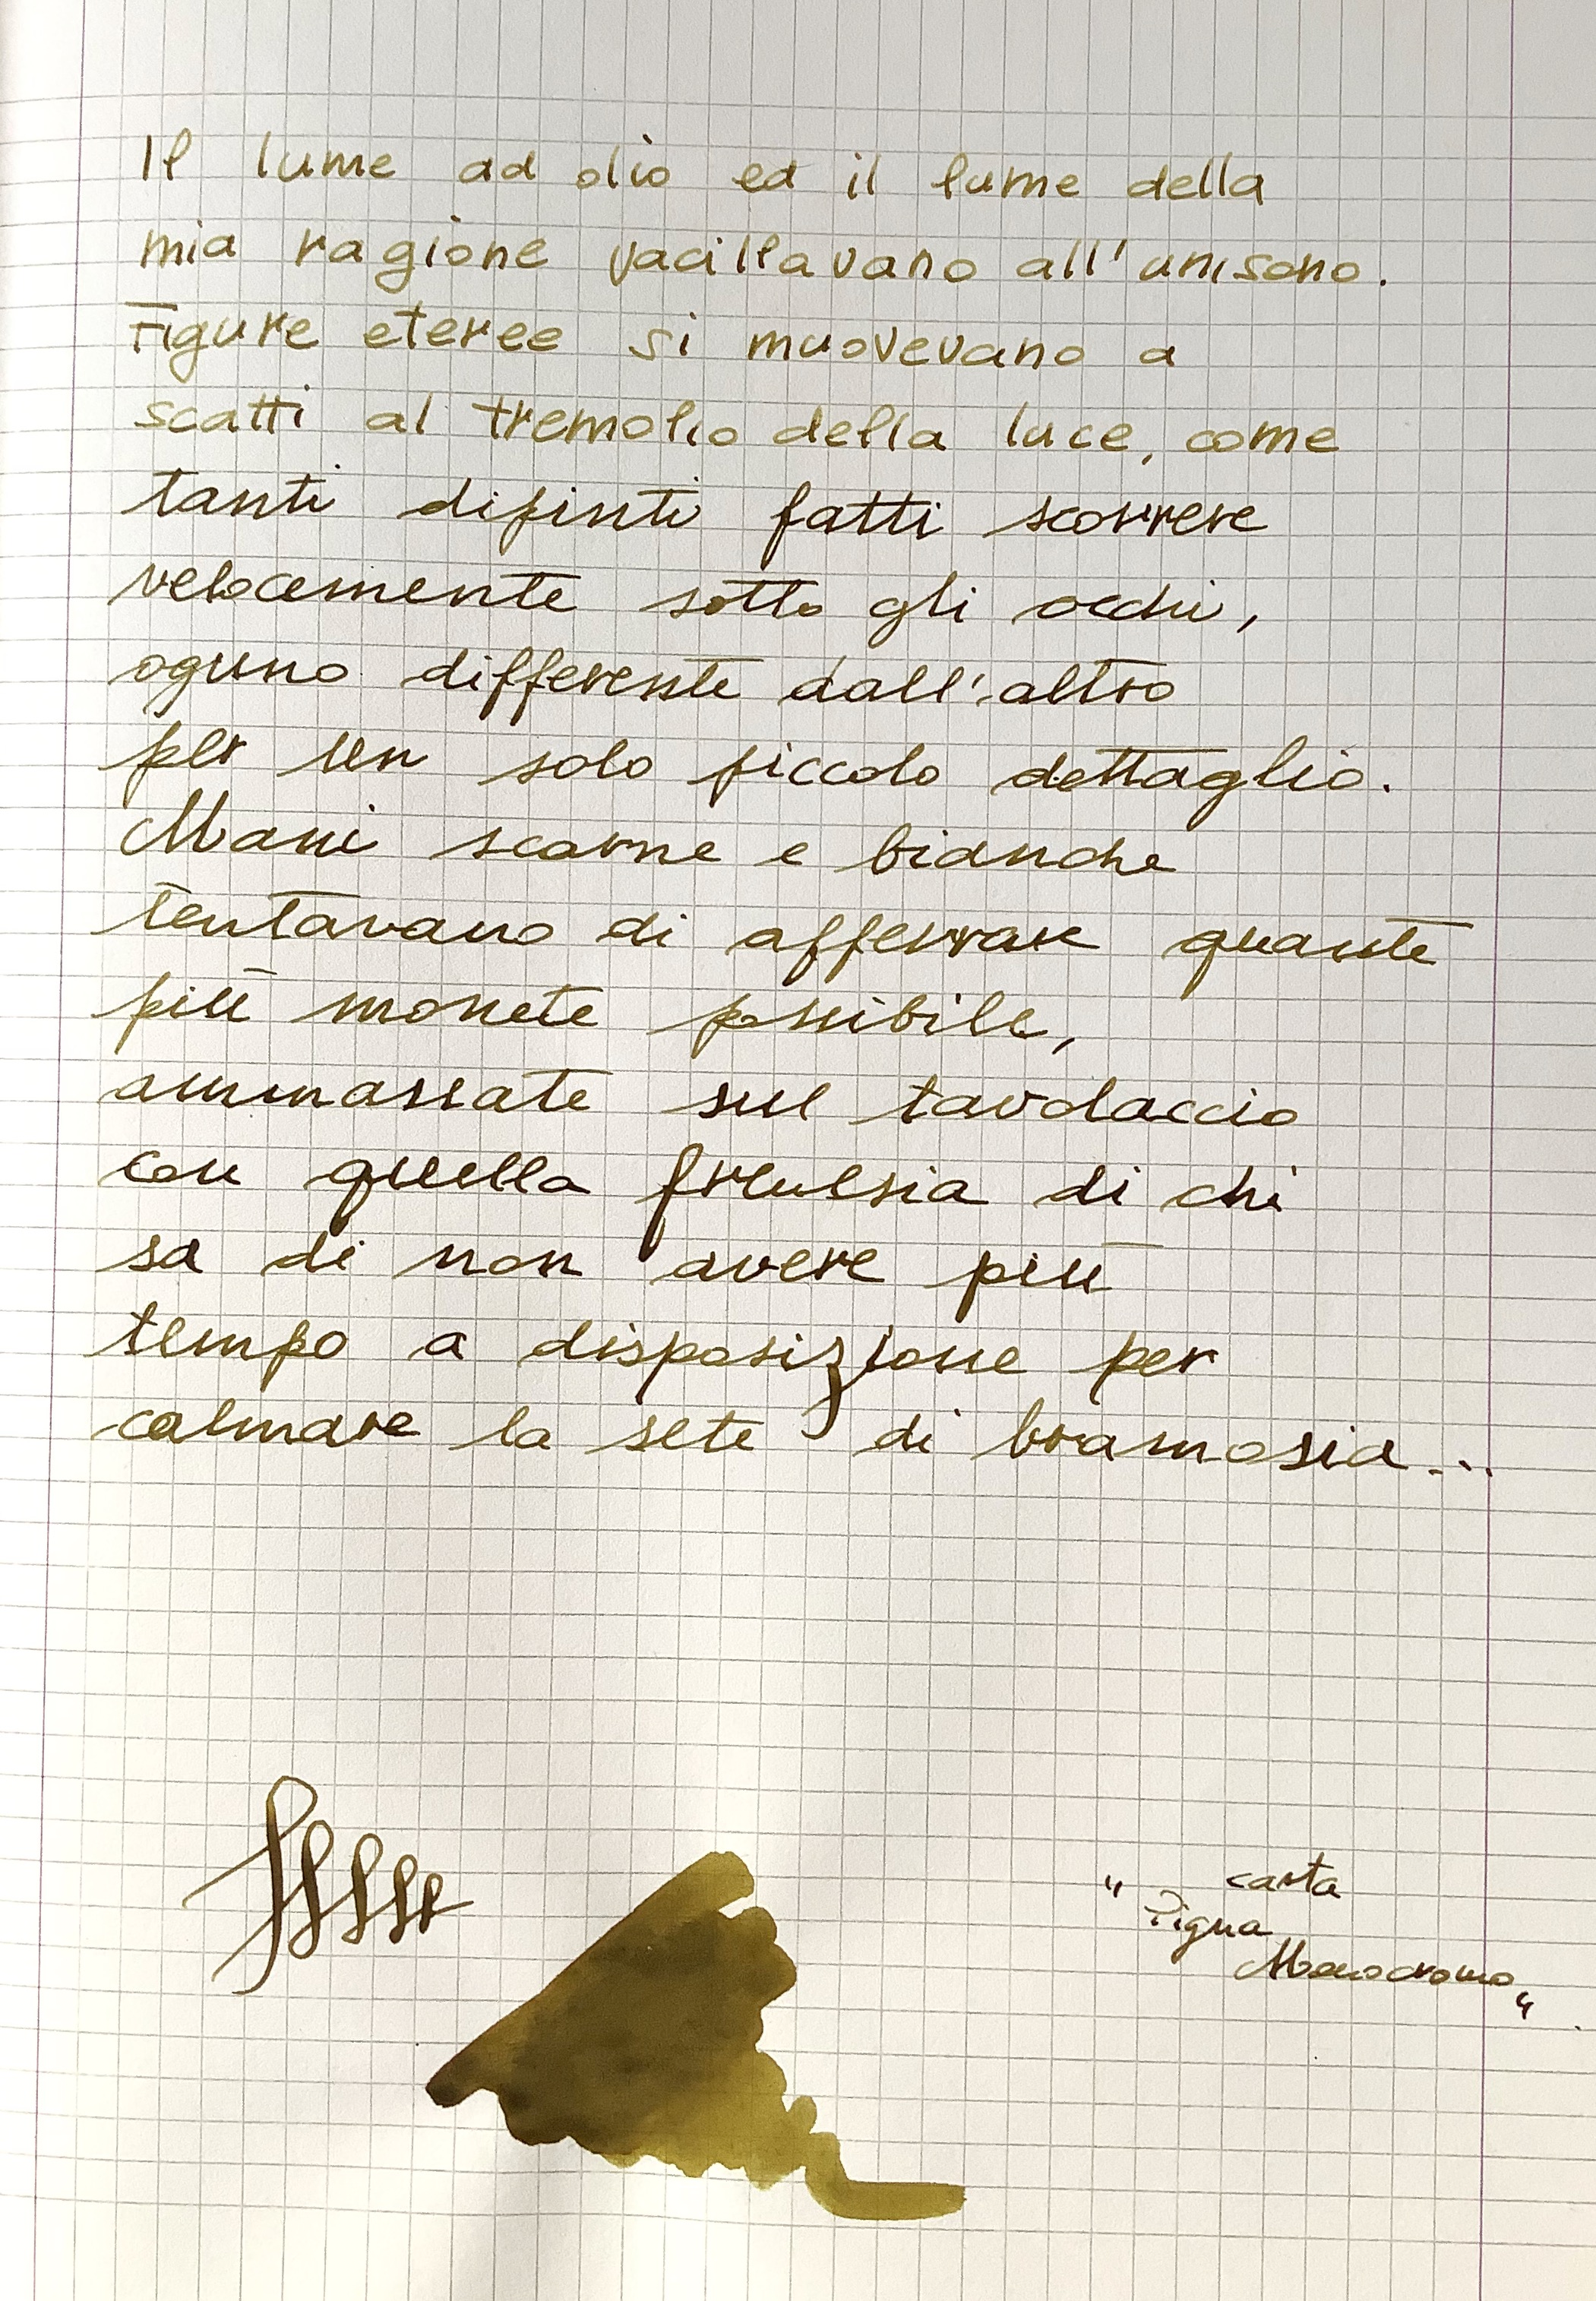 Il lume ad olio ed il lume della
mia ragione vacillavano all'unisono.
Figure eteree si muovevano a
scatti al tremolio della luce, come
tanti dipinti fatti scorrere
velocemente sotto gli occhi,
ognuno differente dall'altro
per un solo piccolo dettaglio.
Mani scarne e bianche
tentavano di afferrare quante
più monete possibile,
ammassate sul tavolaccio
con quella frenesia di chi
sa di non avere più
tempo a disposizione per
calmare la sete di bramosia...
" carta
Pigna
Monocromo "